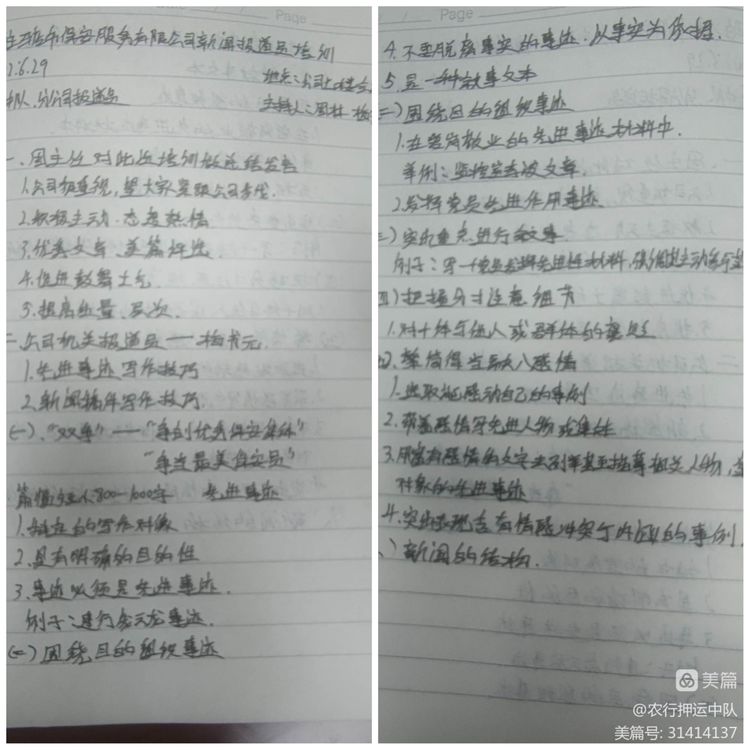 Page
保安服务有限公司新闻报道员培训
.6.29 地点:公司
队、分公司报道员 主持人:周林
一、周主任对此次培训做总结发言
1.公司很重视,望大家
2.积极主动、态度热情
3.优秀文章、美篇评选
4.促进鼓舞士气
5.提高出量、层次.
二、公司机关报道员——
1.先进事迹写作技巧
2.新闻稿件写作技巧.
(一)、"双争"——"争创优秀保安集体"
"争当最美保安员"
篇幅 800-1000字 先进事迹
1.特定的写作对象
2.具有明确的目的性
3.事迹必须是先进事迹.
例子:建行 事迹.
(二)围绕目的组织事迹
Page
4.不要脱离事实的事迹.以事实为依据.
5.是一种叙事文本
二)围绕目的组织事迹
1.在爱岗敬业的先进事迹材料中.
举例:监控室 文章.
2.发挥党员先进作用事迹
三)突出重点进行叙事
例子:写一个党员发挥先进性材料,
四)把握分寸注意细节
1.对个体与他人或群体的
繁简得当融入感情
1.选取能感动自己的事例
2.带着感情写先进人物或集体
3.用富有感情的文字去 相关人物,
对象的先进事迹
4.突出表现含有情感冲突 的事例.
)新闻的结构.
美篇
@农行押运中队
美篇号: 31414137